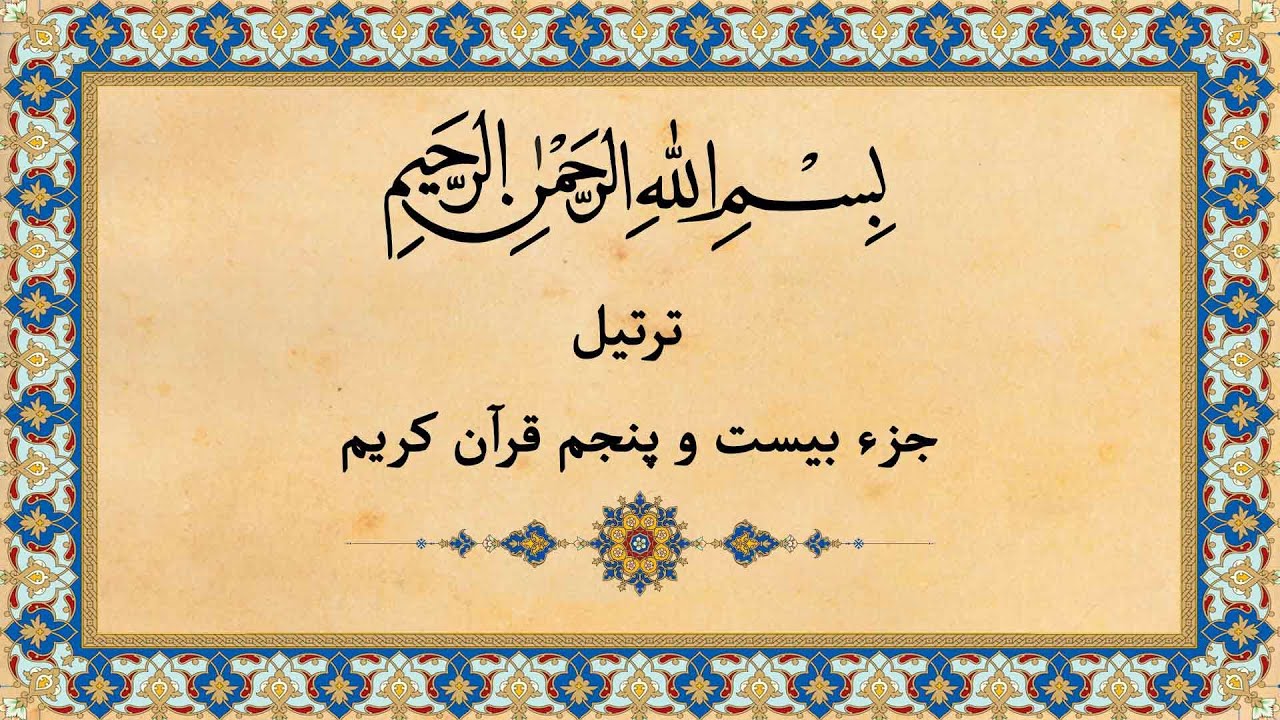 بِسْمِ اللهِ الرَّحْمٰنِ الرَّحِیمِ
ترتیل
جزء بیست و پنجم قرآن کریم